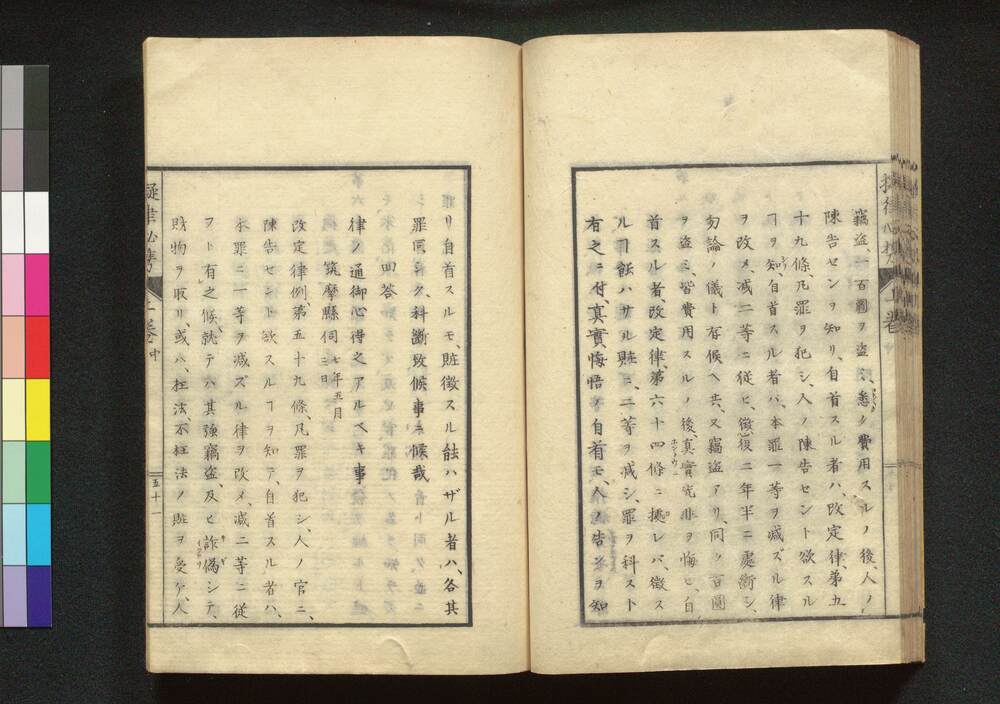 竊盗、一百圓ヲ盗ミ、悉ク費用スルノ後、人ノ
陳告センヲ知リ、自首スル者ハ、改定律、第五
十九條、凡罪ヲ犯シ、人ノ陳告セント欲スル
ヿヲ知、自首スル者ハ、本罪一等ヲ減ズル律
ヲ改メ、減二等ニ従ヒ、懲役二年半ニ處斷シ、
勿論ノ儀ト存候ヘ共、又竊盗アリ、同ク百圓
ヲ盗ミ、皆費用スルノ後、真實先非ヲ悔ヒ、自
首スル者、改定律、第六十四條ニ據レバ、徴ス
ルヿ能ハサル贓ニ、二等ヲ減シ、罪ヲ科スト
有之ニ付、真實悔悟ノ自首モ、人ノ告ヲ知
リ自首スルモ、贓徴スル能ハザル者ハ、各其
罪同シク、科斷致候事ニ候哉
回答
律ノ通御心得之アルベキ事
筑摩縣伺 七年五月三日
改定律例、第五十九條、凡罪ヲ犯シ、人ノ官ニ、
陳告セント欲スルヿヲ知テ、自首スル者ハ、
本罪ニ一等ヲ減ズル律ヲ改メ、減二等ニ従
ヲト、有之候、就テハ其強竊盗、及ヒ詐偽シテ、
財物ヲ取リ、或ハ、枉法不枉法ノ贓ヲ受ケ、人
擬律必携
卷中
五十二